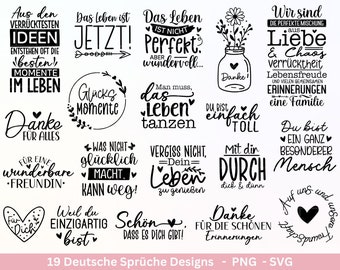 Aus den
VERRÜCKTESTEN
IDEEN
ENTSTEHEN OFT DIE
besten
MOMENTE
IM LEBEN
Das Leben ist
JETZT!
Das Leben
IST NICHT
Perfekt
ABER
wundervoll...
Danke!
Wir sind
DIE PERFEKTE MISCHUNG
aus
Liebe
& Chaos
verrücktheit
Lebensfreude
und vielen gemeinsamen
ERINNERUNGEN
eine Familie
Danke
FÜR ALLES
Glücks
Momente
Man muss
das
Leben
tanzen
DU BIST
EINFACH
TOLL
Du bist
EIN GANZ
BESONDERER
Mensch
FÜR EINE
wunderbare
FREUNDIN
WAS NICHT
glücklich
MACHT
KANN weg!
VERGISS NICHT,
Dein
Leben
zu genießen
Mit dir
DURCH
dick & dünn
Für
Dich
Weil du
EINZIGARTIG
bist
Schön
DASS ES DICH GIBT!
Danke
FÜR DIE SCHÖNEN
Erinnerungen
Auf uns und unsere Freundschaft
19 Deutsche Sprüche Designs - PNG - SVG